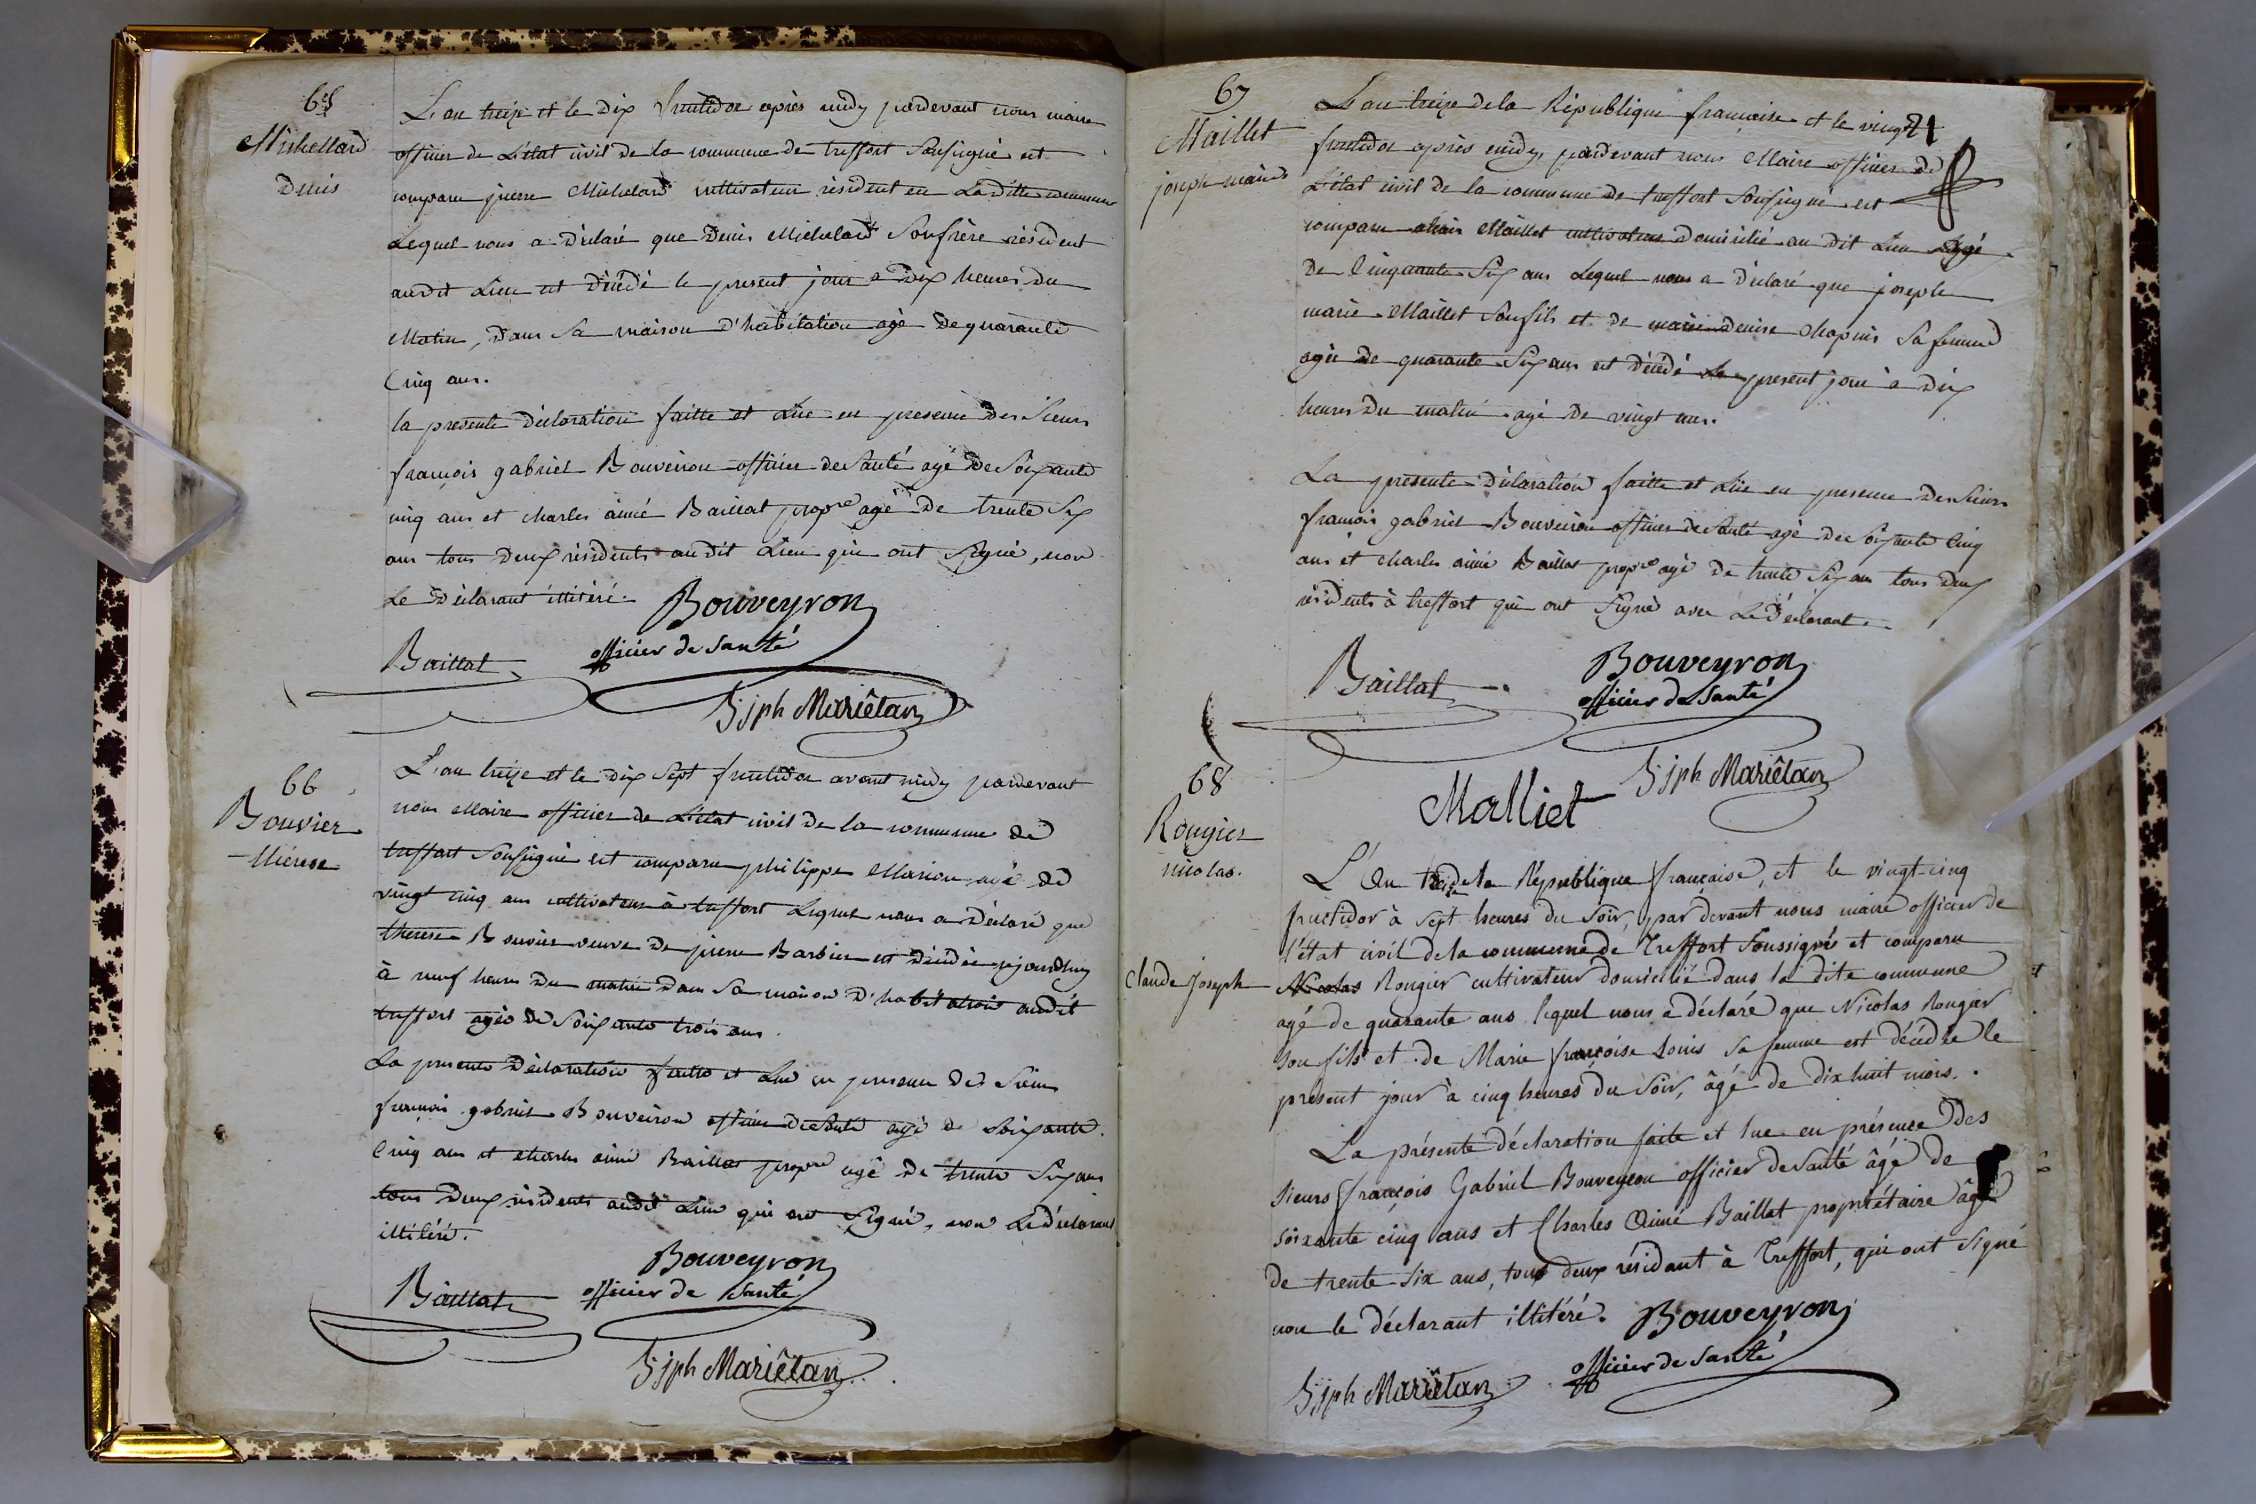 65
Michellard
Denis
L'an treize et le dix fructidor après midy pardevant nous maire
officier de L'état civil de la commune de treffort Soussigné est
comparu pierre Michelard cultivateur résident en La Ditte commune
Lequel nous a déclaré que Denis Michelard Son frère résident
audit Lieu est décédé le present jour a Dix heures du
Matin, dans Sa maison d'habitation agé de quarante
Cinq ans.
la presente déclaration faitte et Lüe en presence des Sieurs
françois gabriel Bouveiron officier de Santé agé de Soixante
cinq ans et charles aimé Baillat propre agé de trente Six
ans tous deux résidents audit Lieu qui ont Signé, non
Le Déclarant illitéré.
Bouveyron
officier de Santé
Baillat
jph Mariêtan
66
Bouvier
therese
L'an treize et le dix Sept fructidor avant midy pardevant
nous Maire officier de L'état civil de la commune de
treffort Soussigné est comparu philippe Marion agé de
vingt cinq ans cultivateur à treffort Lequel nous a Déclaré que
therese Bouvier veuve de pierre Barbier est décédée ajourdhuy
à neuf heures du matin dans Sa maison D'habitation audit
treffort agée de Soixante trois ans.
La presente Déclaration faitte et Lue en presence des Sieurs
françois gabriel Bouveiron officier de Santé agé de Soixante
Cinq ans et charles aimé Baillat propre agé de trente Six ans
tous deux résidents audit Lieu qui ont Signé, non Le déclarant
illitéré.
Bouveyron
officier de Santé
Baillat
jph Mariêtan
67
Maillet
joseph marie
L'an treize de la République française et le vingt
21
fructidor après midy, pardevant nous Maire officier de
L'état civil de la commune de treffort Soussigné est
comparu Maillet cultivateur domicilié au dit Lieu Agé
De Cinquante Six ans Lequel nous a Déclaré que joseph
marie Maillet Son fils et de marie denise Chapuis Sa femme
agée de quarante Six ans est décédé Le present jour à dix
heures du matin agé de vingt ans.
La presente déclaration faitte et Lüe en presence des Sieurs
françois gabriel Bouveiron officier de Santé agé de Soixante Cinq
ans et charles aimé Baillat propre agé de trente Six ans tous deux
résidents à treffort qui ont Signé avec Le Déclarant.
Baillat
Bouveyron
officier de Santé
jph Mariêtan
Malliet
68
Rougier
nicolas.
L'An treize de la République française, et le vingt-cinq
fructidor à sept heures du Soir, par devant nous maire officier de
l'état civil de la commune de Treffort Soussigné et comparu
Claude Joseph
Nicolas Rougier cultivateur domicilié dans la dite commune
agé de quarante ans lequel nous a déclaré que Nicolas Rougier
son fils et de Marie françoise Louis sa femme est décédé le
présent jour à cinq heures du Soir, âgé de dix huit mois.
La présente déclaration faite et lue en présence des
sieurs françois Gabriel Bouveyron officier de Santé âgé de
soixante cinq ans et Charles Aimé Baillat propriétaire âgé
de trente six ans, tous deux résidant à Treffort, qui ont signé
non le déclarant illitéré.
Bouveyron
officier de Santé
jph Mariêtan